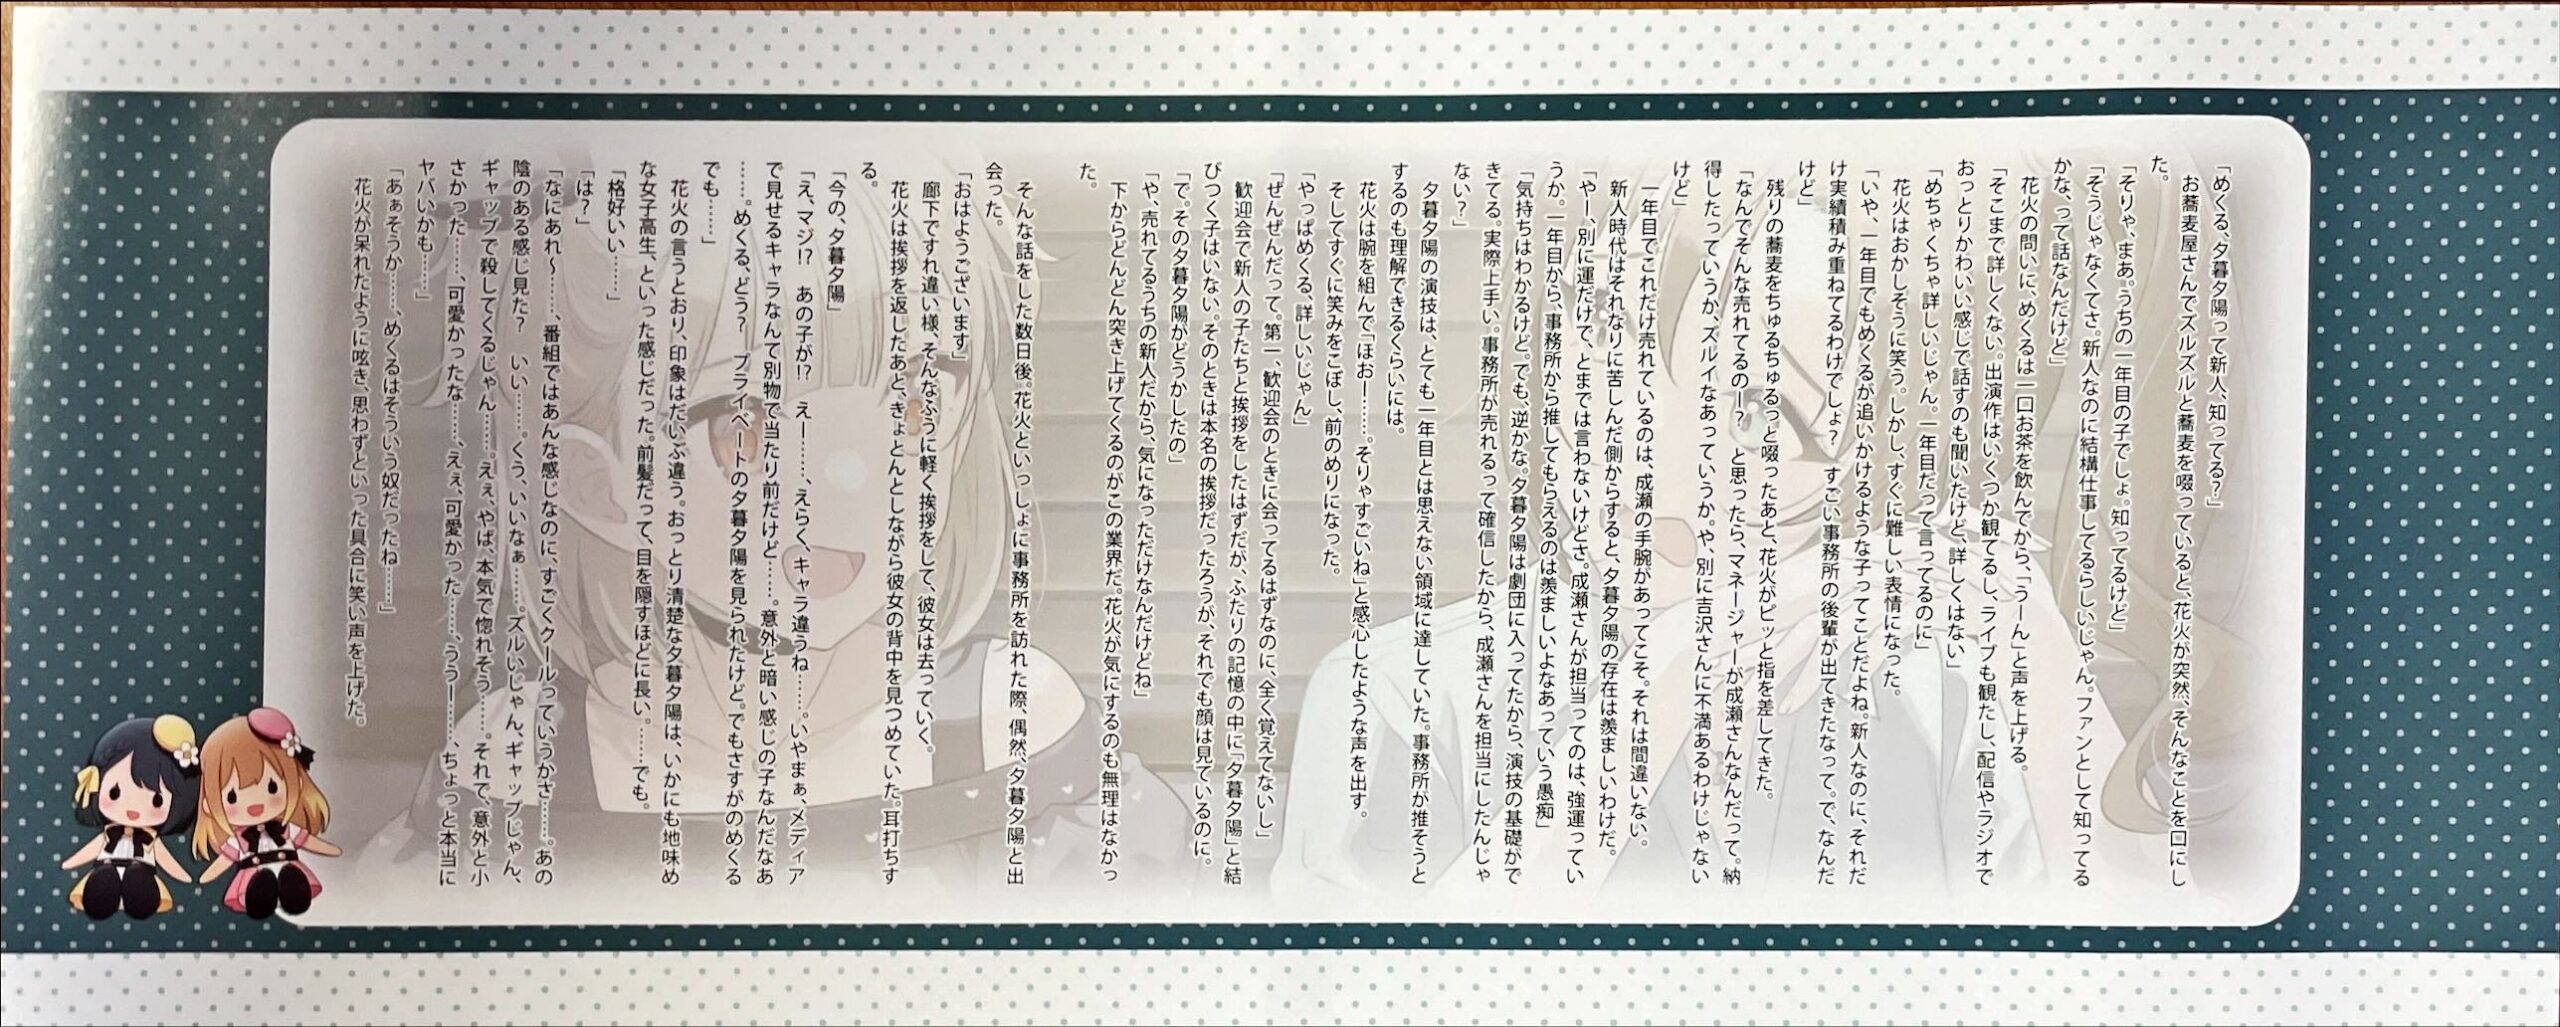 「めくる、夕暮夕陽って新人、知ってる？」
　お蕎麦屋さんでズルズルと蕎麦を啜っていると、花火が突然、そんなことを口にし
た。
「そりゃ、まあ。うちの一年目の子でしょ。知ってるけど」
「そうじゃなくてさ。新人なのに結構仕事してるらしいじゃん。ファンとして知ってる
かな、って話なんだけど」
　花火の問いに、めくるは一口お茶を飲んでから、「うーん」と声を上げる。
「そこまで詳しくない。出演作はいくつか観てるし、ライブも観たし、配信やラジオで
おっとりかわいい感じで話すのも聞いたけど、詳しくはない」
「めちゃくちゃ詳しいじゃん。一年目だって言ってるのに」
　花火はおかしそうに笑う。しかし、すぐに難しい表情になった。
「いや、一年目でもめくるが追いかけるような子ってことだよね。新人なのに、それだ
け実績積み重ねてるわけでしょ？　すごい事務所の後輩が出てきたなって。で、なんだ
けど」
　残りの蕎麦をちゅるちゅるっと啜ったあと、花火がピッと指を差してきた。
「なんでそんな売れてるのー？　と思ったら、マネージャーが成瀬さんなんだって。納
得したっていうか、ズルイなあっていうか。や、別に吉沢さんに不満あるわけじゃない
けど」
　一年目でこれだけ売れているのは、成瀬の手腕があってこそ。それは間違いない。
　新人時代はそれなりに苦しんだ側からすると、夕暮夕陽の存在は羨ましいわけだ。
「やー、別に運だけで、とまでは言わないけどさ。成瀬さんが担当ってのは、強運ってい
うか。一年目から、事務所から推してもらえるのは羨ましいよなあっていう愚痴」
「気持ちはわかるけど。でも、逆かな。夕暮夕陽は劇団に入ってたから、演技の基礎がで
きてる。実際上手い。事務所が売れるって確信したから、成瀬さんを担当にしたんじゃ
ない？」
　夕暮夕陽の演技は、とても一年目とは思えない領域に達していた。事務所が推そうと
するのも理解できるくらいには。
　花火は腕を組んで「ほおー……。そりゃすごいね」と感心したような声を出す。
　そしてすぐに笑みをこぼし、前のめりになった。
「やっぱめくる、詳しいじゃん」
「ぜんぜんだって。第一、歓迎会のときに会ってるはずなのに、全く覚えてないし」
　歓迎会で新人の子たちと挨拶をしたはずだが、ふたりの記憶の中に「夕暮夕陽」と結
びつく子はいない。そのときは本名の挨拶だったろうが、それでも顔は見ているのに。
「で。その夕暮夕陽がどうかしたの」
「や、売れてるうちの新人だから、気になっただけなんだけどね」
　下からどんどん突き上げてくるのがこの業界だ。花火が気にするのも無理はなかっ
た。
　そんな話をした数日後。花火といっしょに事務所を訪れた際、偶然、夕暮夕陽と出
会った。
「おはようございます」
　廊下ですれ違い様、そんなふうに軽く挨拶をして、彼女は去っていく。
　花火は挨拶を返したあと、きょとんとしながら彼女の背中を見つめていた。耳打ちす
る。
「今の、夕暮夕陽」
「え、マジ!?　あの子が!?　えー……、えらく、キャラ違うね……。いやまぁ、メディア
で見せるキャラなんて別物で当たり前だけど……。意外と暗い感じの子なんだなあ
……。めくる、どう？　プライベートの夕暮夕陽を見られたけど。でもさすがのめくる
でも……」
　花火の言うとおり、印象はだいぶ違う。おっとり清楚な夕暮夕陽は、いかにも地味め
な女子高生、といった感じだった。前髪だって、目を隠すほどに長い。……でも。
「格好いい……」
「は？」
「なにあれ〜……、番組ではあんな感じなのに、すごくクールっていうかさ……。あの
陰のある感じ見た？　いい……。くう、いいなぁ……。ズルいじゃん、ギャップじゃん、
ギャップで殺してくるじゃん……。ええ、やば、本気で惚れそう……。それで、意外と小
さかった……、可愛かったな……、ええ、可愛かった……、ううー……、ちょっと本当に
ヤバいかも……」
「あぁそうか……、めくるはそういう奴だったね……」
　花火が呆れたように呟き、思わずといった具合に笑い声を上げた。